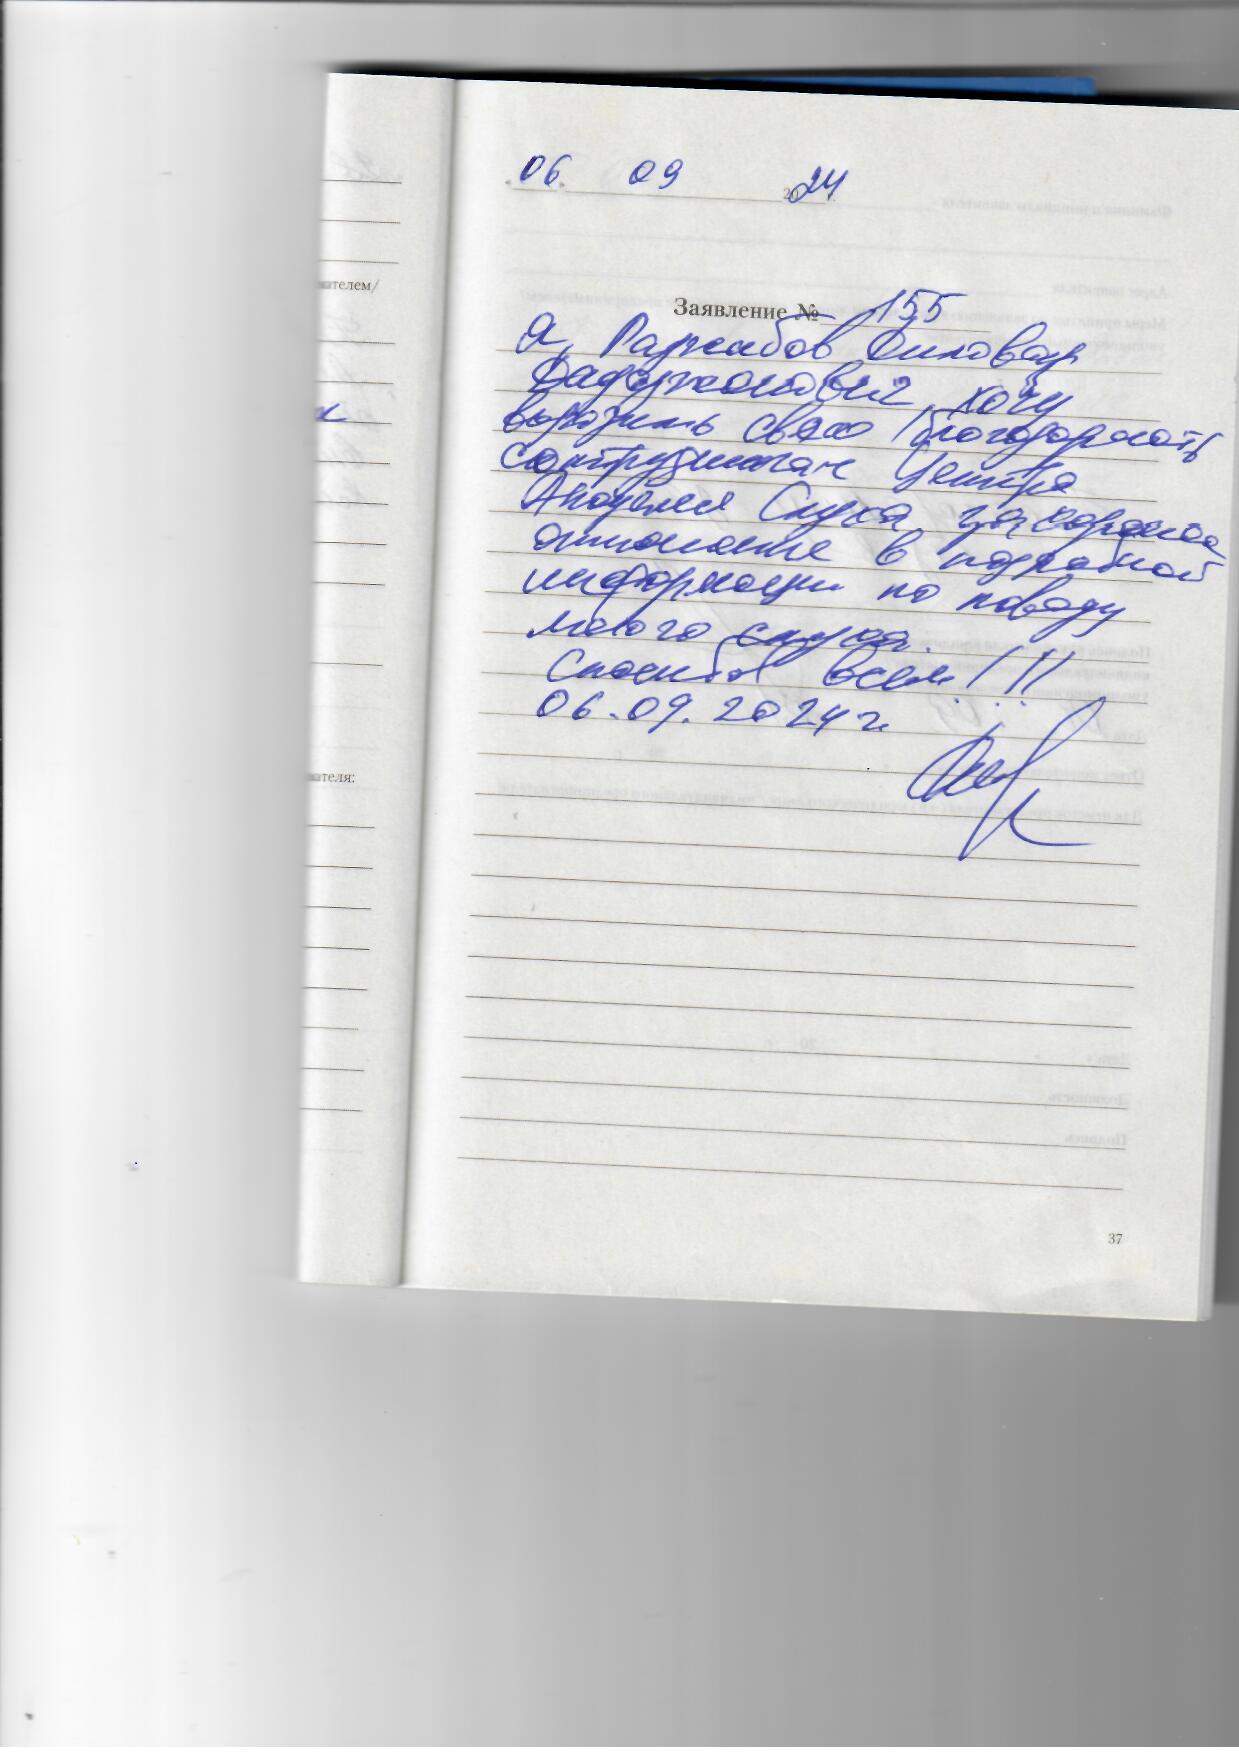 06 09 2024
Заявление № 155
Я, Раджабов Диловар
хочу
выразить свою благодарность
сотрудникам Центра
Академия Слуха, за хорошее
отношение в подробной
информации по поводу
моего слуха.
Спасибо всем!!!
06.09.2024 г.
ателем/
ателя:
37